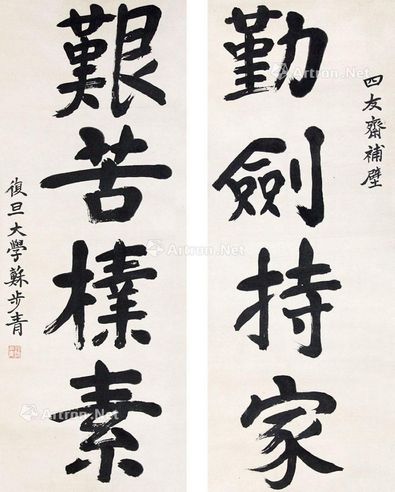 四友齋補壁
勤劍持家
艱苦樸素
復旦大學蘇步青
Artron.Net
Artron.Net
Artron.Net
Artron.Net
Artron.Net